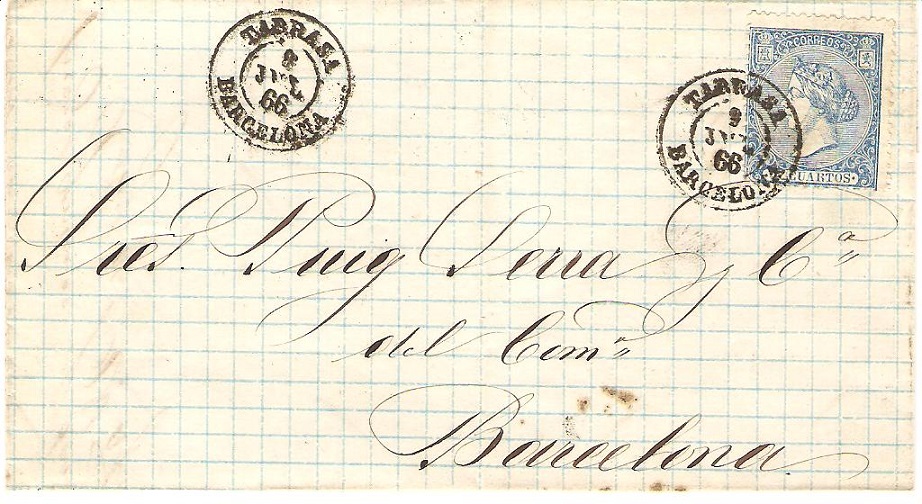 TARRASA
9
JUL
66
BARCELONA
TARRASA
9
JUL
66
BARCELONA
CORREOS
CUARTOS
Sres. Puig Serra y Cª
del Comº
Barcelona